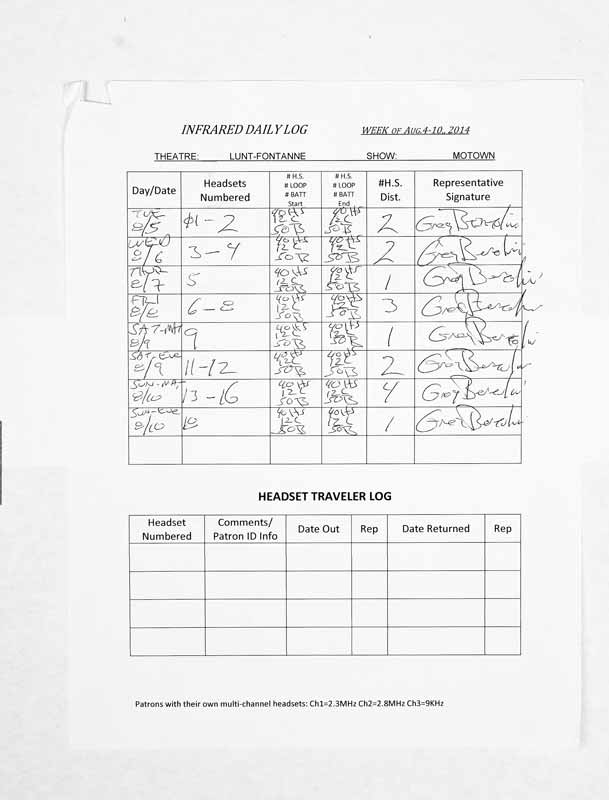 INFRARED DAILY LOG WEEK OF AUG.4-10, 2014
THEATRE: LUNT-FONTANNE SHOW: MOTOWN
Day/Date Headsets Numbered # H.S. # LOOP # BATT Start # H.S. # LOOP # BATT End #H.S. Dist. Representative Signature
TUE 8/5 #1-2 40HS 12L 50B 40HS 12L 50B 2 Greg Bersolin
WED 8/6 3-4 40HS 12L 50B 40HS 12L 50B 2
THUR 8/7 5 40HS 12L 50B 40HS 12L 50B 1
FRI 8/8 6-8 40HS 12L 50B 40HS 12L 50B 3
SAT-MAT 8/9 9 40HS 12L 50B 40HS 12L 50B 1
SAT-EVE 8/9 11-12 40HS 12L 50B 40HS 12L 50B 2
SUN-MAT 8/10 13-16 40HS 12L 50B 40HS 12L 50B 4
SUN-EVE 8/10 10 40HS 12L 50B 40HS 12L 50B 1
HEADSET TRAVELER LOG
Headset Numbered Comments/ Patron ID Info Date Out Rep Date Returned Rep
Patrons with their own multi-channel headsets: Ch1=2.3MHz Ch2=2.8MHz Ch3=9KHz